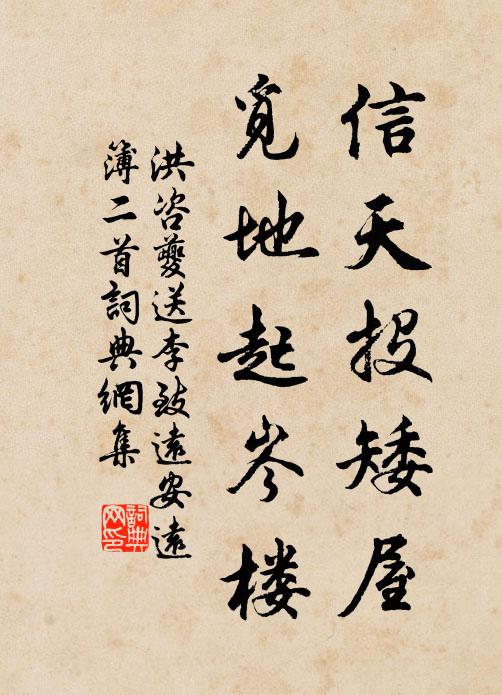 信天投矮屋
觅地起岑楼
洪咨夔送李致远安远
簿二首詞典網集
詞典
网印